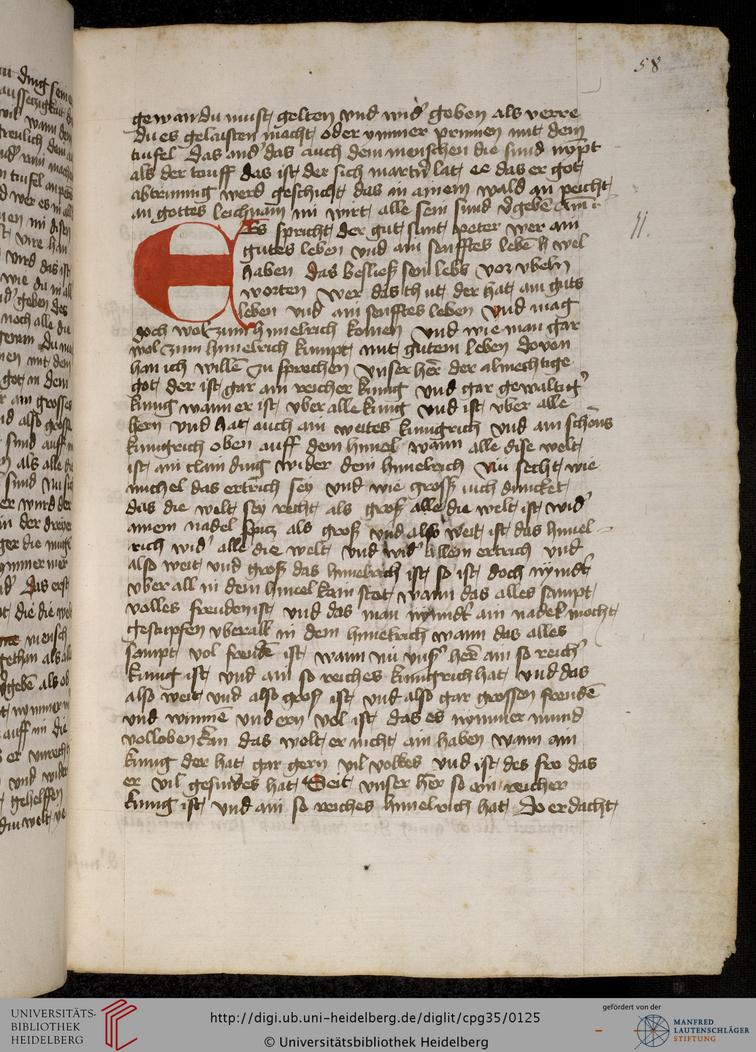 58
gewan du must gelten vnd wid' geben als verre
du es gelaisten macht oder ymmer prinnen mit dem
tiufel Das and' das auch dem menschen die sund nympt
als der touff das ist der sich martn lat ee das er got
abtrunnig werd geschicht das an ainem wald an peicht
an gottes leichnam im wirt alle sein sund v'geben Am
Es spricht der gut sant peter wer ain
gutes leben vnd ain senfftes leben h wel
haben das besließ sein lebs vor vbeln
worten wer das th ut der hat ain guts
leben vnd ain senfftes leben vnd mag
doch wol zum himelrich komen vnd wie man gar
wol zum himelrich kumpt mit gutem leben do von
han ich willen zu sprechen Vnser herr der almechtige
got der ist gar ain reicher kunig vnd gar gewaltig'
kunig wann er ist vber alle kunig vnd ist vber alle
hern vnd hat auch ain weites kunigrich vnd ain schöns
kunigrich oben auff dem himel wann alle dise welt
ist ain clain ding wider dem himelreich Nu secht wie
michel das ertrich sey vnd wie groß iuch duncket
das die welt sey recht als groß alle die welt ist wid'
ainem nadel spitz als groß vnd als weit ist das himel
rich wid' alle die welt vnd wid' allem ertrich vnd
also weit vnd groß das himelreich ist so ist doch nyndt
vber all in dem himel kain stat wann das alles sampt
volles freuden ist vnd das man nyndt ain nadel mocht
gestupfen vberall in dem himelrich wann das alles
sampt vol freude ist wann nu vnß' herr ain so reich'
kunig ist vnd ain so reiches kunigrich hat vnd das
also weit vnd also groß ist vnd also gar grossen freuden
vnd winnen vnd ern vol ist das es nymmer mund
volloben kan das wolt er nicht ain haben wann ain
kunig der hat gar gern vil volkes vnd ist des fro das
er vil gesindes hat Seit vnser herr so ein reicher
kunig ist vnd ain so reiches himelrich hat Do erdacht
UNIVERSITÄTS-
BIBLIOTHEK
HEIDELBERG
http://digi.ub.uni-heidelberg.de/diglit/cpg35/0125
© Universitätsbibliothek Heidelberg
gefördert von der
MANFRED
LAUTENSCHLÄGER
STIFTUNG